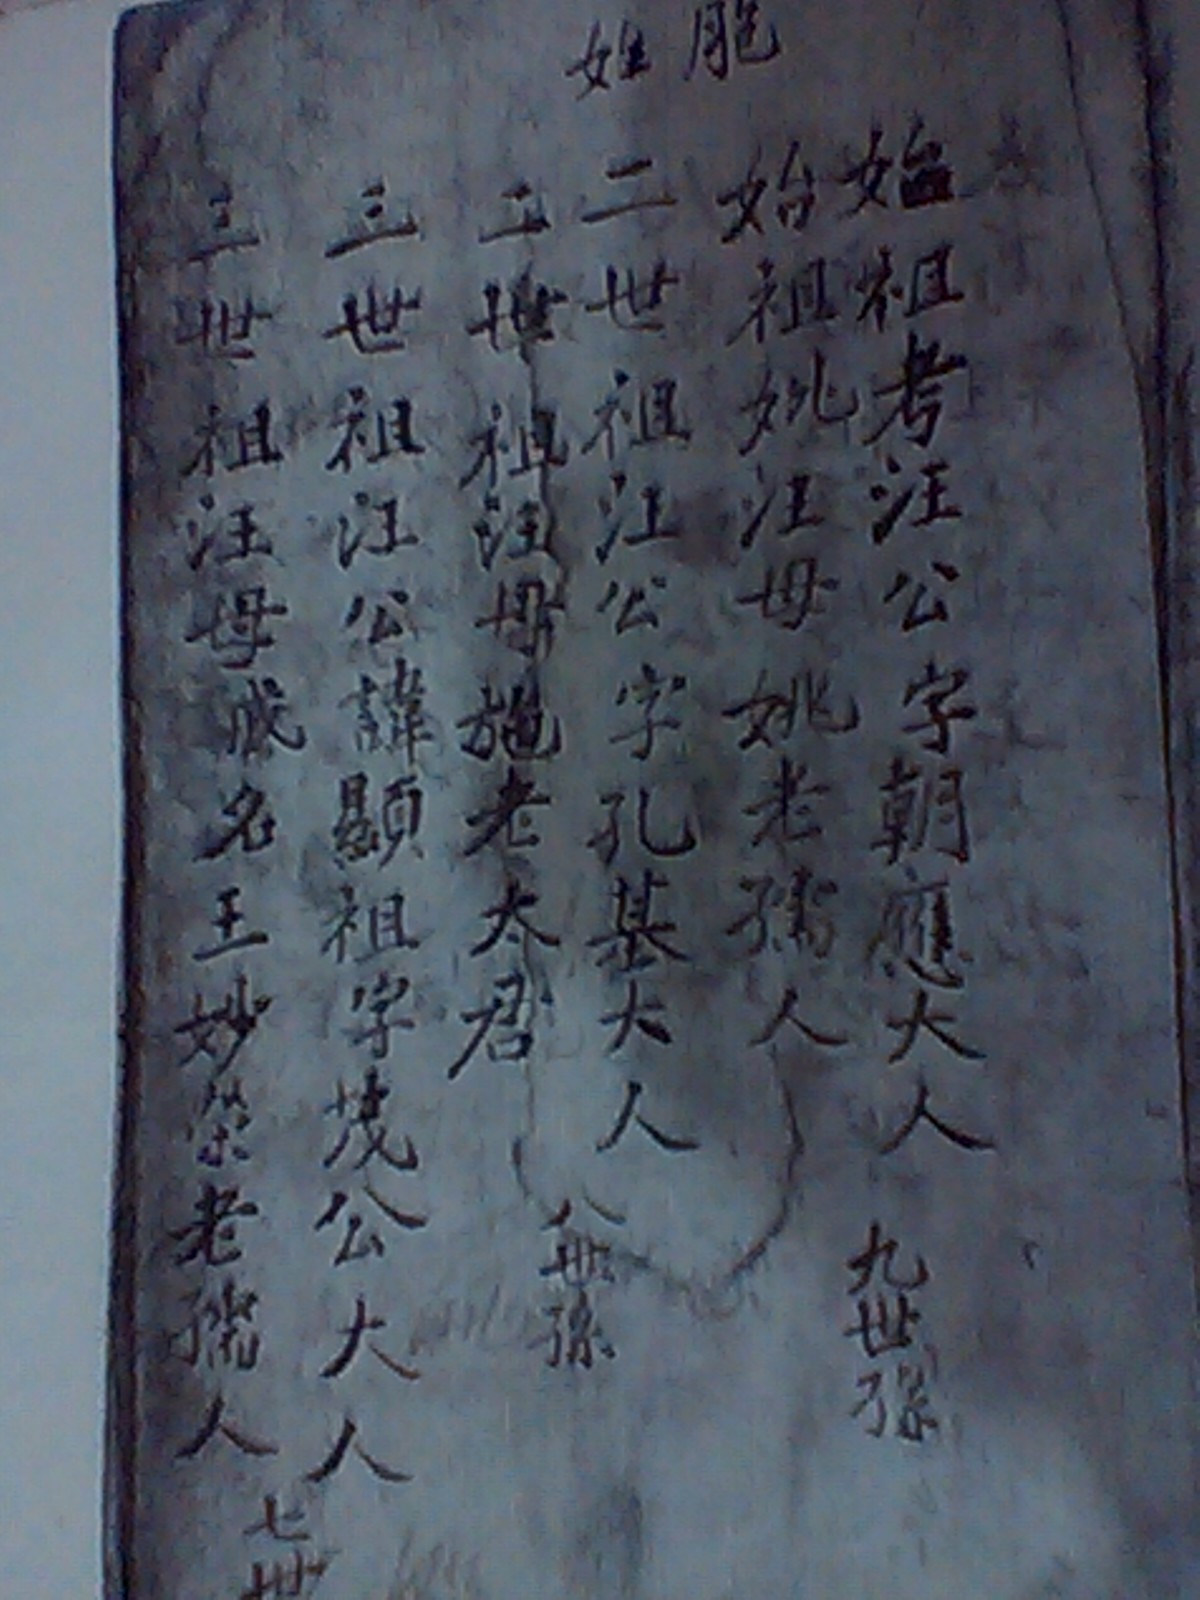 胞姓
始祖考汪公字朝應大人
始祖妣汪母姚老孺人
九世孫
二世祖汪公字孔基大人
二世祖汪母施老太君
八世孫
三世祖汪公諱顯祖字茂公大人
三世祖汪母戚名王妙榮老孺人
七世